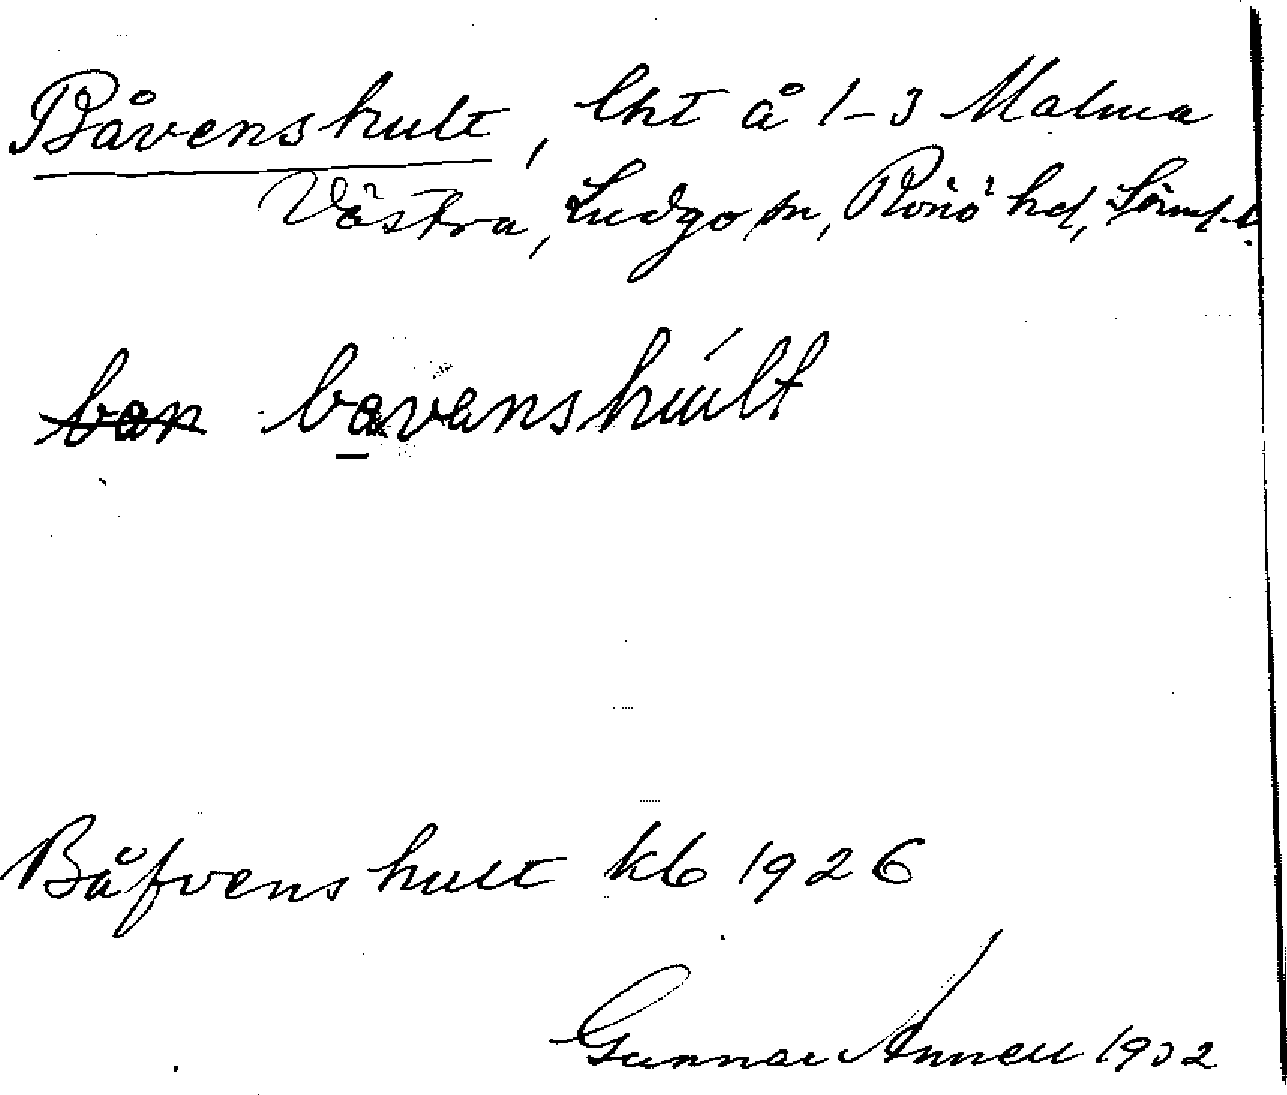 Båvenshult, lht å 1-3 Malma
Västra, Ludgo sn, Rönö hd, Sörml.
ban bavanshúlt
Båfvenshult kb 1926
Gunnar Annell 1932